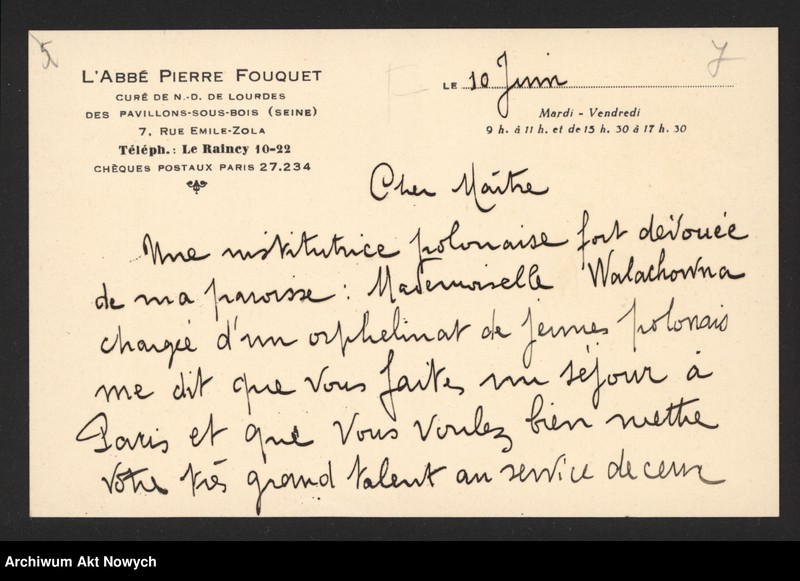 5
7
L'ABBÉ PIERRE FOUQUET
CURÉ DE N.-D. DE LOURDES
DES PAVILLONS-SOUS-BOIS (SEINE)
7, RUE EMILE-ZOLA
Téléph.: Le Raincy 10-22
CHÈQUES POSTAUX PARIS 27.234
LE 10 Juin
Mardi - Vendredi
9 h. à 11 h. et de 15 h. 30 à 17 h. 30
Cher Maître
Une institutrice polonaise fort dévouée
de ma paroisse : Mademoiselle Walachowna
chargée d'un orphelinat de jeunes polonais
me dit que vous faites un séjour à
Paris et que vous voulez bien mettre
votre très grand talent au service de ceux
Archiwum Akt Nowych